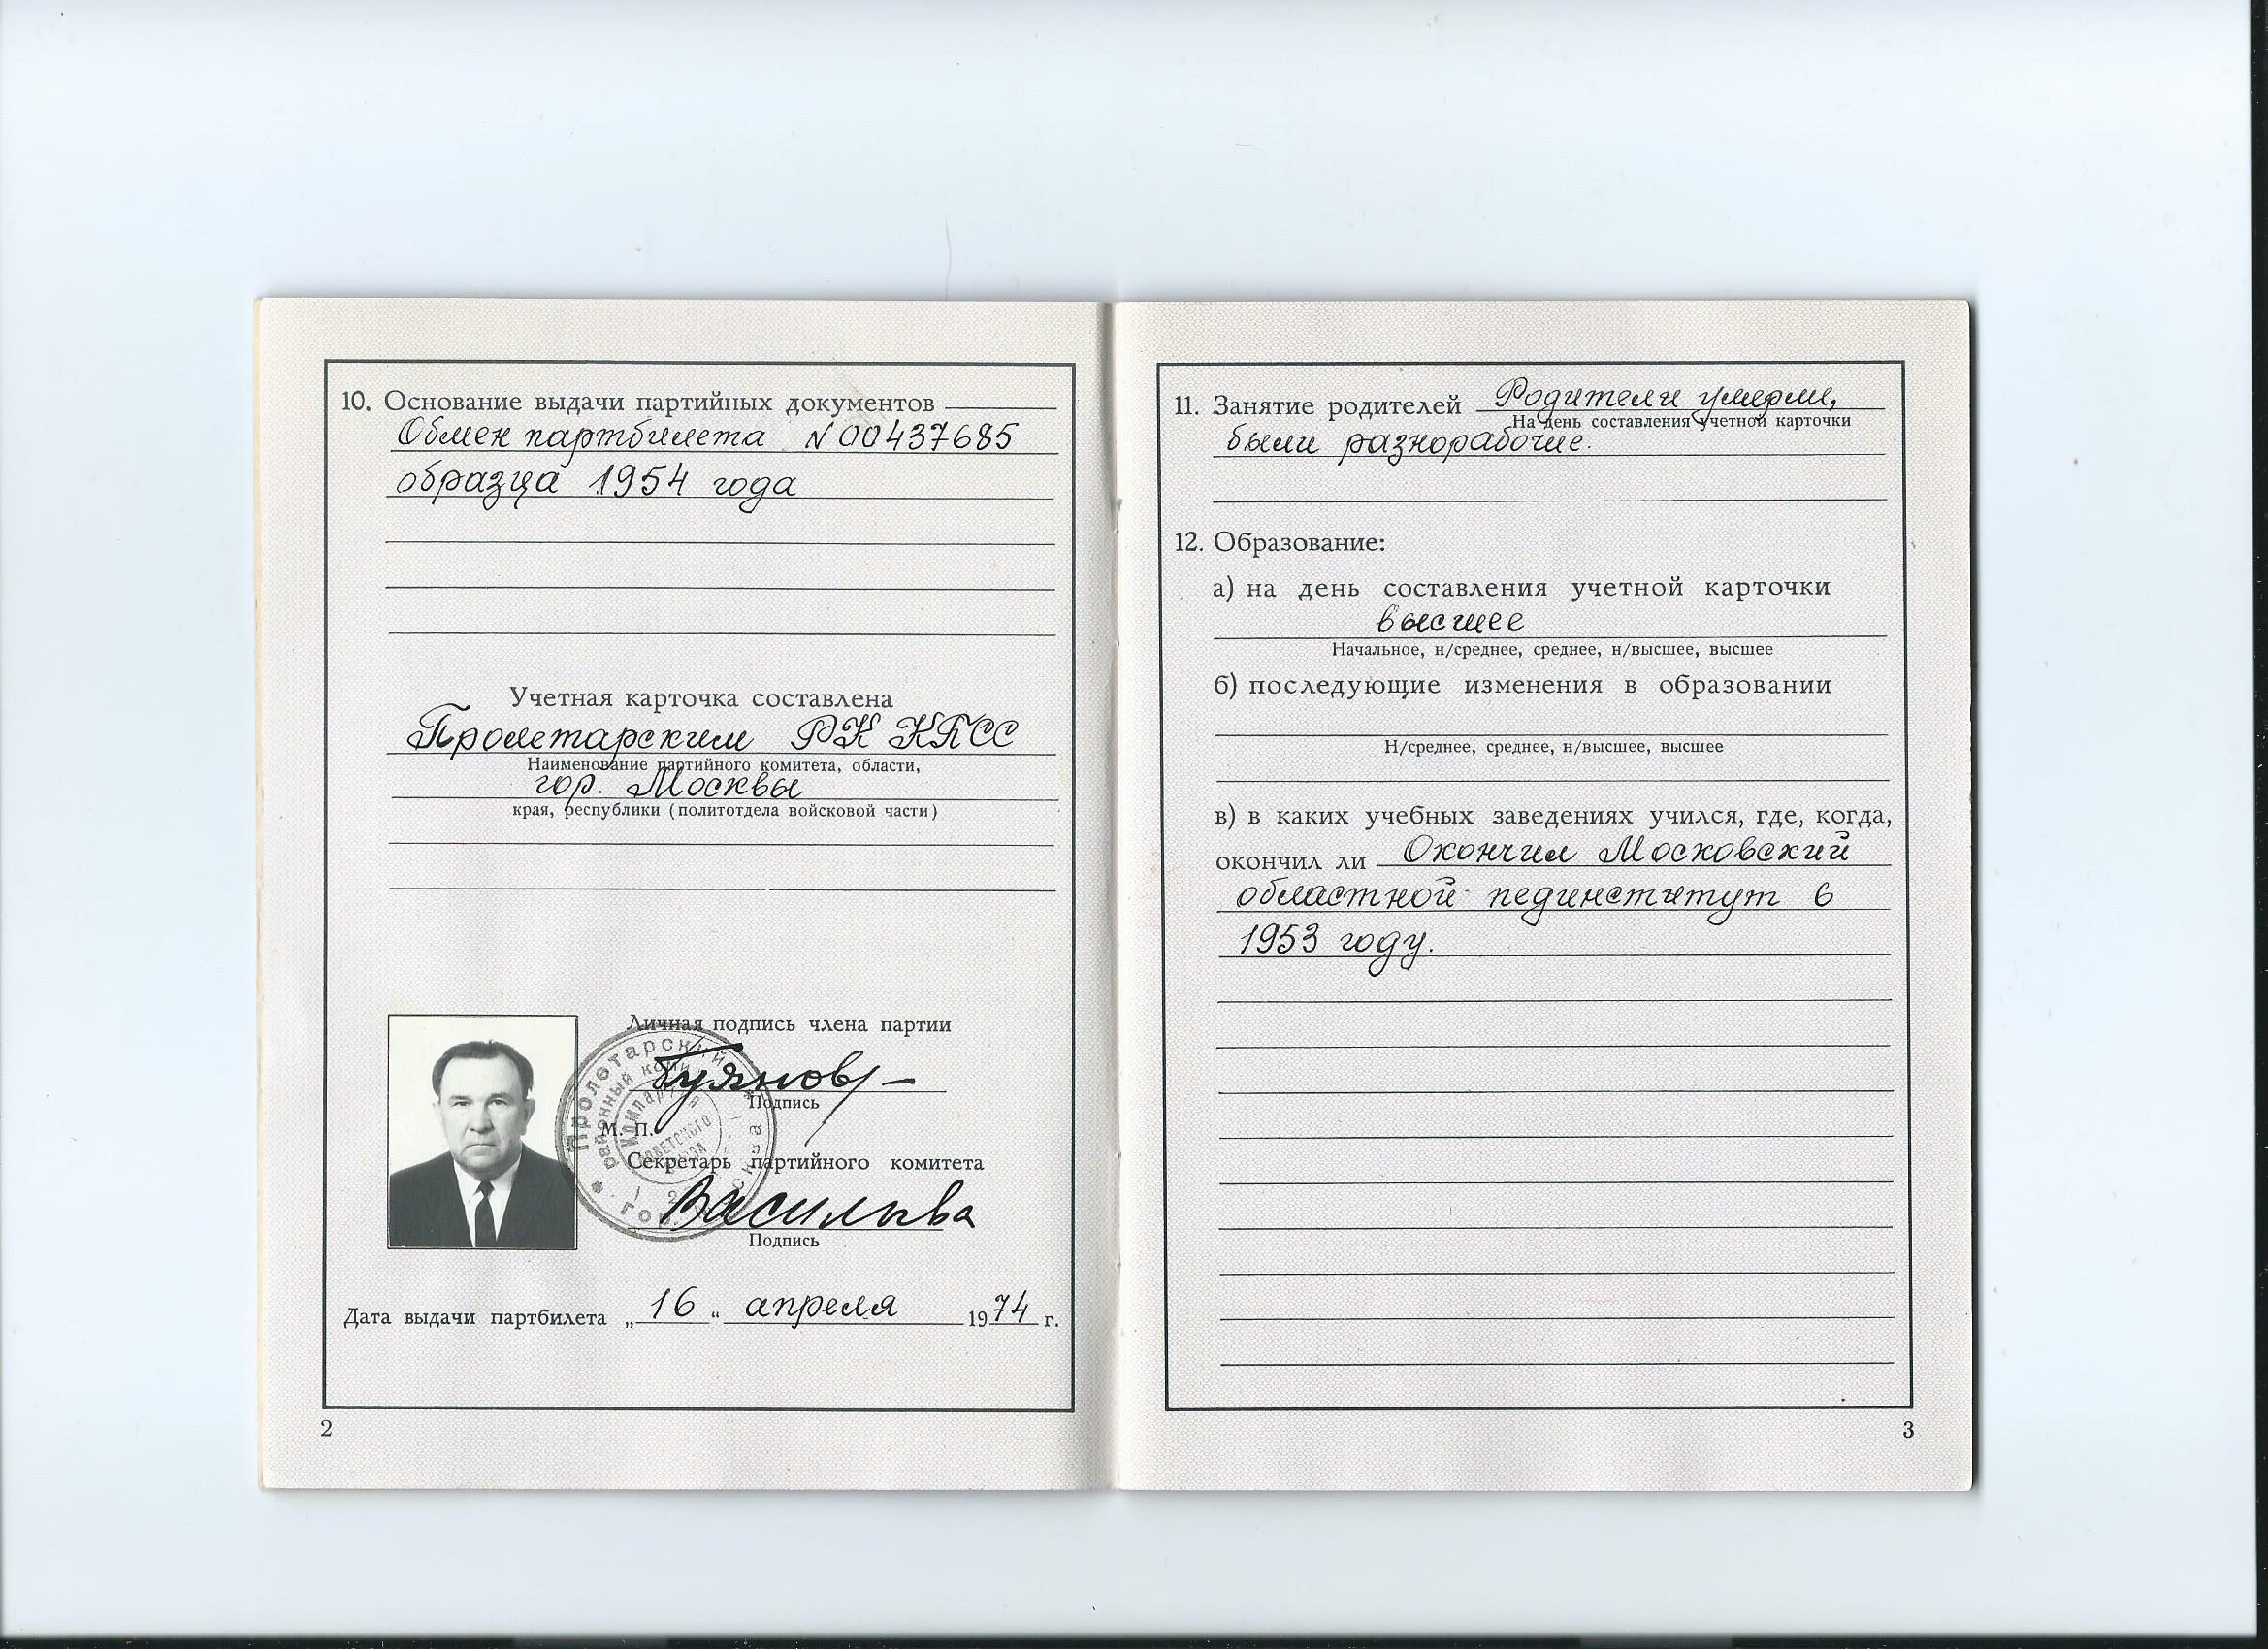 10. Основание выдачи партийных документов
Обмен партбилета N 00437685
образца 1954 года
Учетная карточка составлена
Пролетарским РК КПСС
Наименование партийного комитета, области,
гор. Москвы
края, республики (политотдела войсковой части)
Личная подпись члена партии
Буянов
Подпись
М. П.
Пролетарский
районный
Компартия
Советского
Союза
гор. Москва
Секретарь партийного комитета
Подпись
Дата выдачи партбилета „16“ апреля 1974 г.
2
11. Занятие родителей Родители умерли,
На день составления учетной карточки
были разнорабочие.
12. Образование:
а) на день составления учетной карточки
высшее
Начальное, н/среднее, среднее, н/высшее, высшее
б) последующие изменения в образовании
Н/среднее, среднее, н/высшее, высшее
в) в каких учебных заведениях учился, где, когда,
окончил ли Окончил Московский
областной пединститут в
1953 году.
3